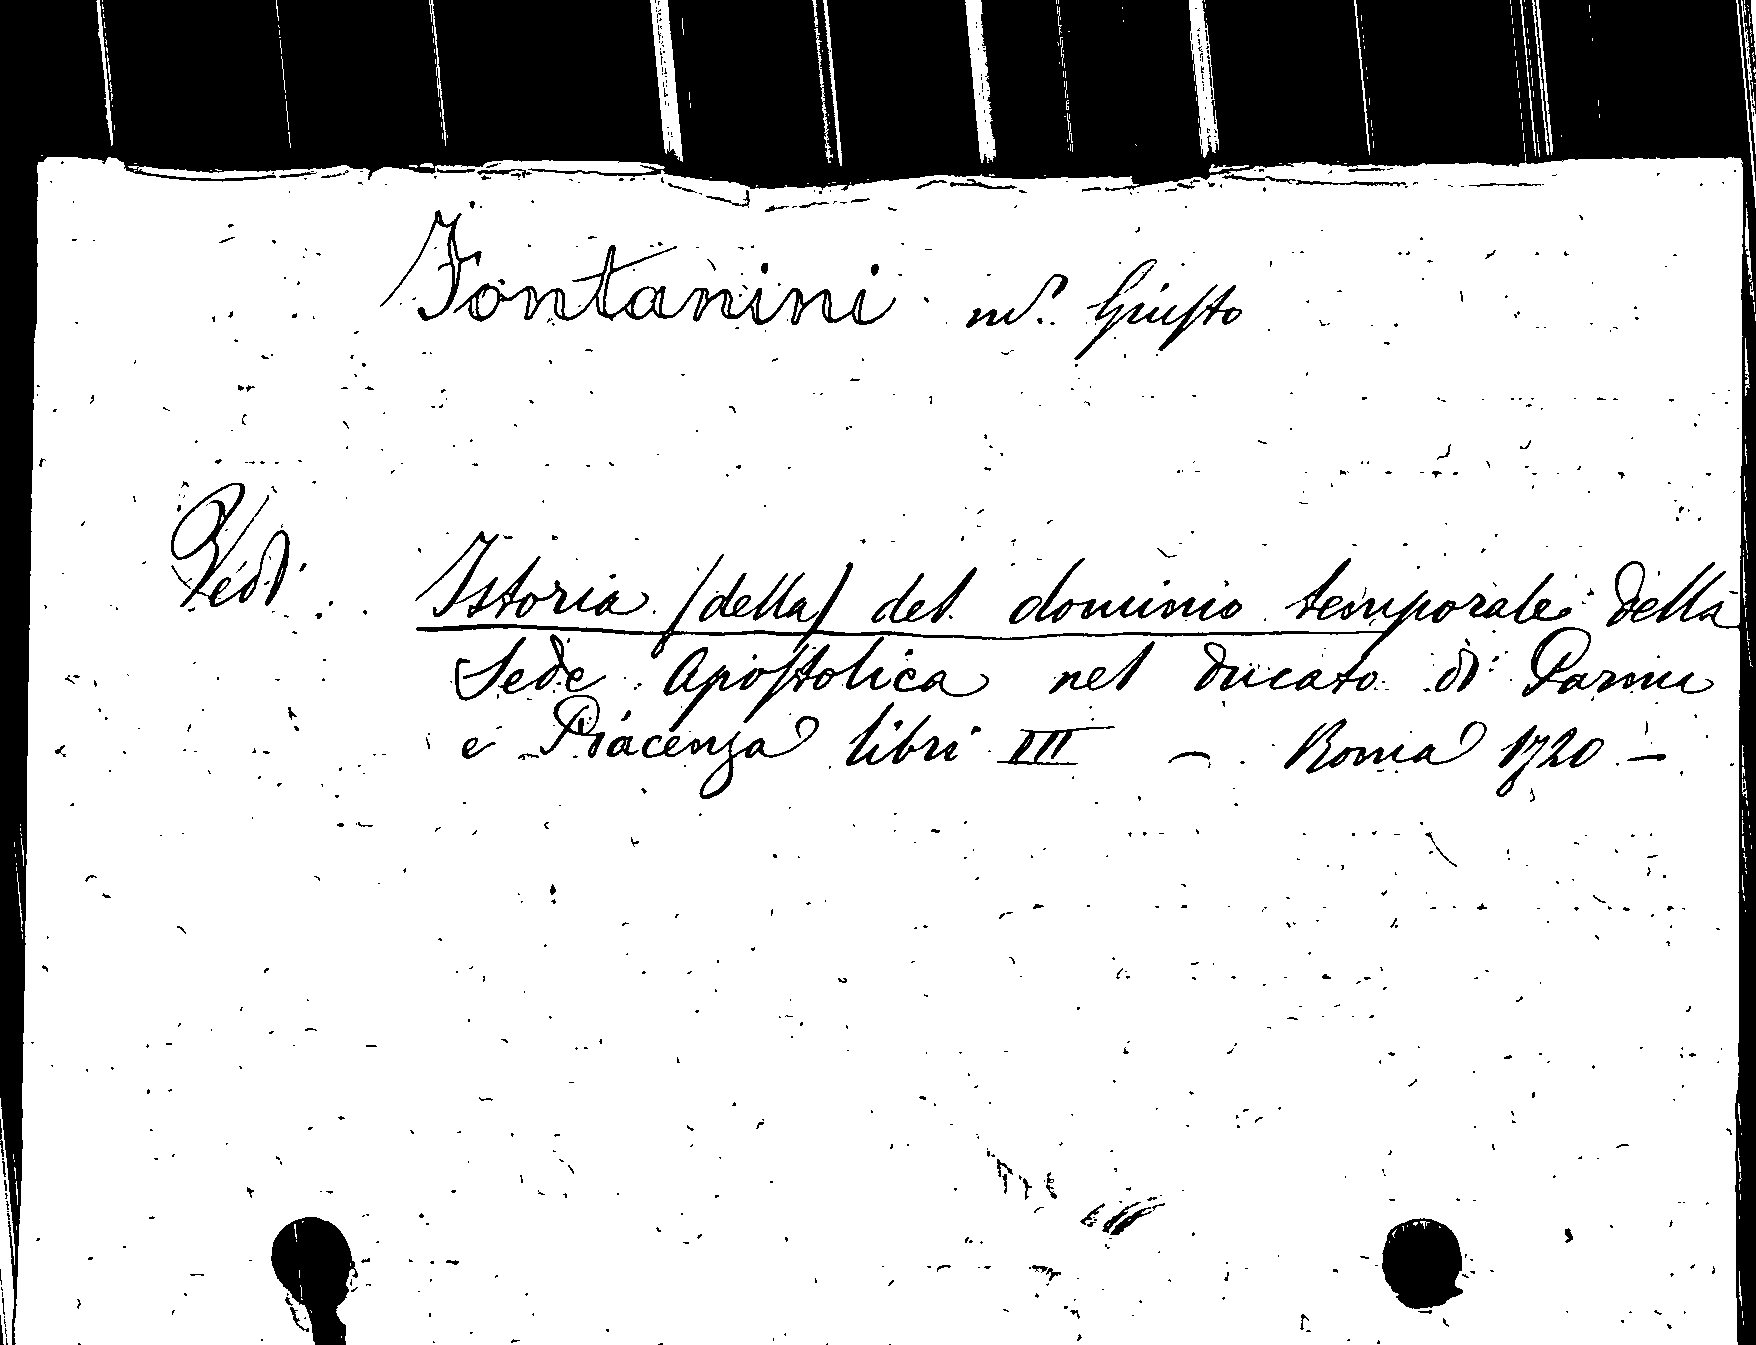 Fontanini m.r Giusto
Vedi Istoria (della) del dominio temporale della
Sede Apostolica nel ducato di Parma
e Piacenza libri III – Roma 1720 –